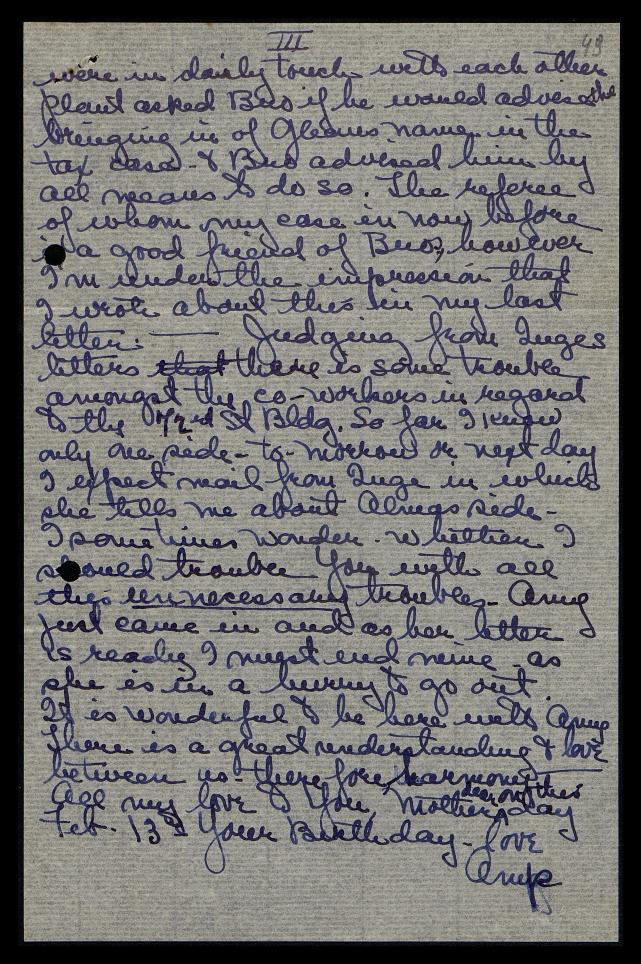 III
49
were in daily touch with each other
Plant asked Bros if he would advise the
bringing in of Gleans name in the
tax case - & Bros advised him by
all means to do so. The referee
of whom my case in now before
is a good friend of Bros, however
I'm under the impression that
I wrote about this in my last
letter. —— Judging from Inges
letters that there is some trouble
amongst the co-workers in regard
to the 72nd St Bldg. So far I know
only one side - to-morrow or next day
I expect mail from Inge in which
she tells me about Almas side -
I sometimes wonder - whether I
should trouble You with all
this unnecessary troubles - Amy
just came in and as her letter
is ready I must end mine - as
she is in a hurry to go out.
It is wonderful to be here with Amy
There is a great understanding & love
between us - therefore, harmony -
All my love to You, Mother dear on this day
Feb. 13th Your Birthday - love